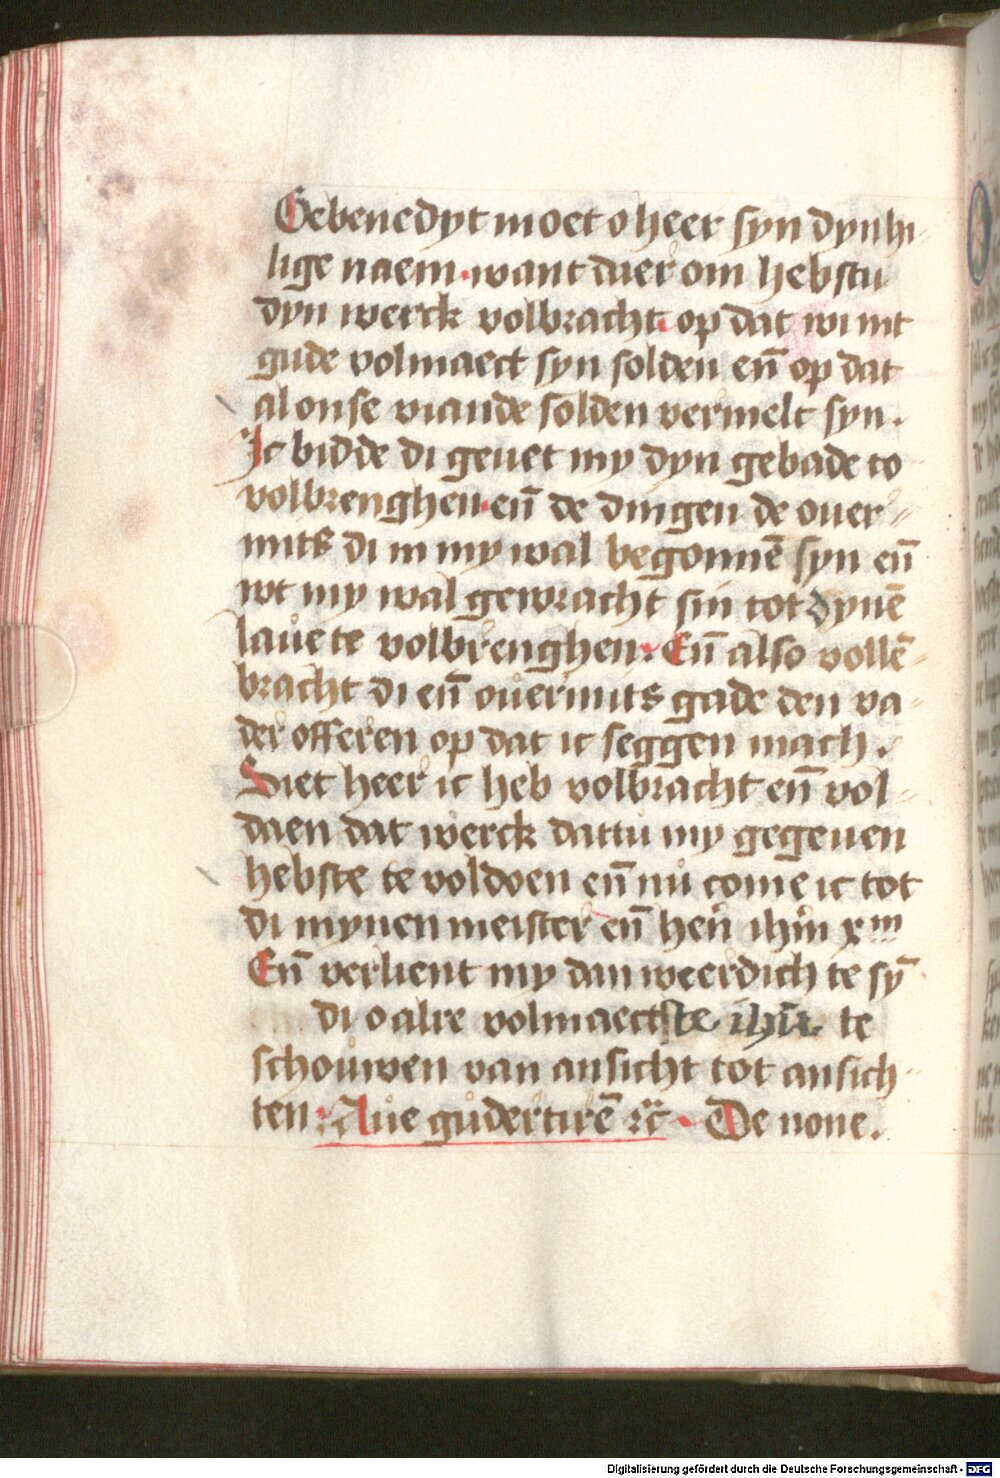 Gebenedyt moet o heer syn dyn hi-
lige naem. want daer om hebstu
dyn werck volbracht. op dat wi int
gude volmaect syn solden eñ op dat
al onse viande solden vermelt syn.
Ic bidde di geuet my dyn gebade to
volbrenghen. eñ de dingen de ouer-
mits di in my wal begonnē syn eñ
wt my wal gewracht sin tot dynē
laue te volbrenghen. Eñ also vollē-
bracht di eñ ouermits gade den va-
der offeren op dat ic seggen mach.
Siet heer ic heb volbracht eñ vol-
daen dat werck dattu my gegeuen
hebste te voldoen eñ nu come ic tot
di mynen meister eñ heñ ihm̄ xpm
Eñ verlient my dan weerdich te sȳ
di o alre volmaectste ihū. te
schouwen van ansicht tot ansich-
ten. Aue gudertirē &c. De none.
Digitalisierung gefördert durch die Deutsche Forschungsgemeinschaft - DFG